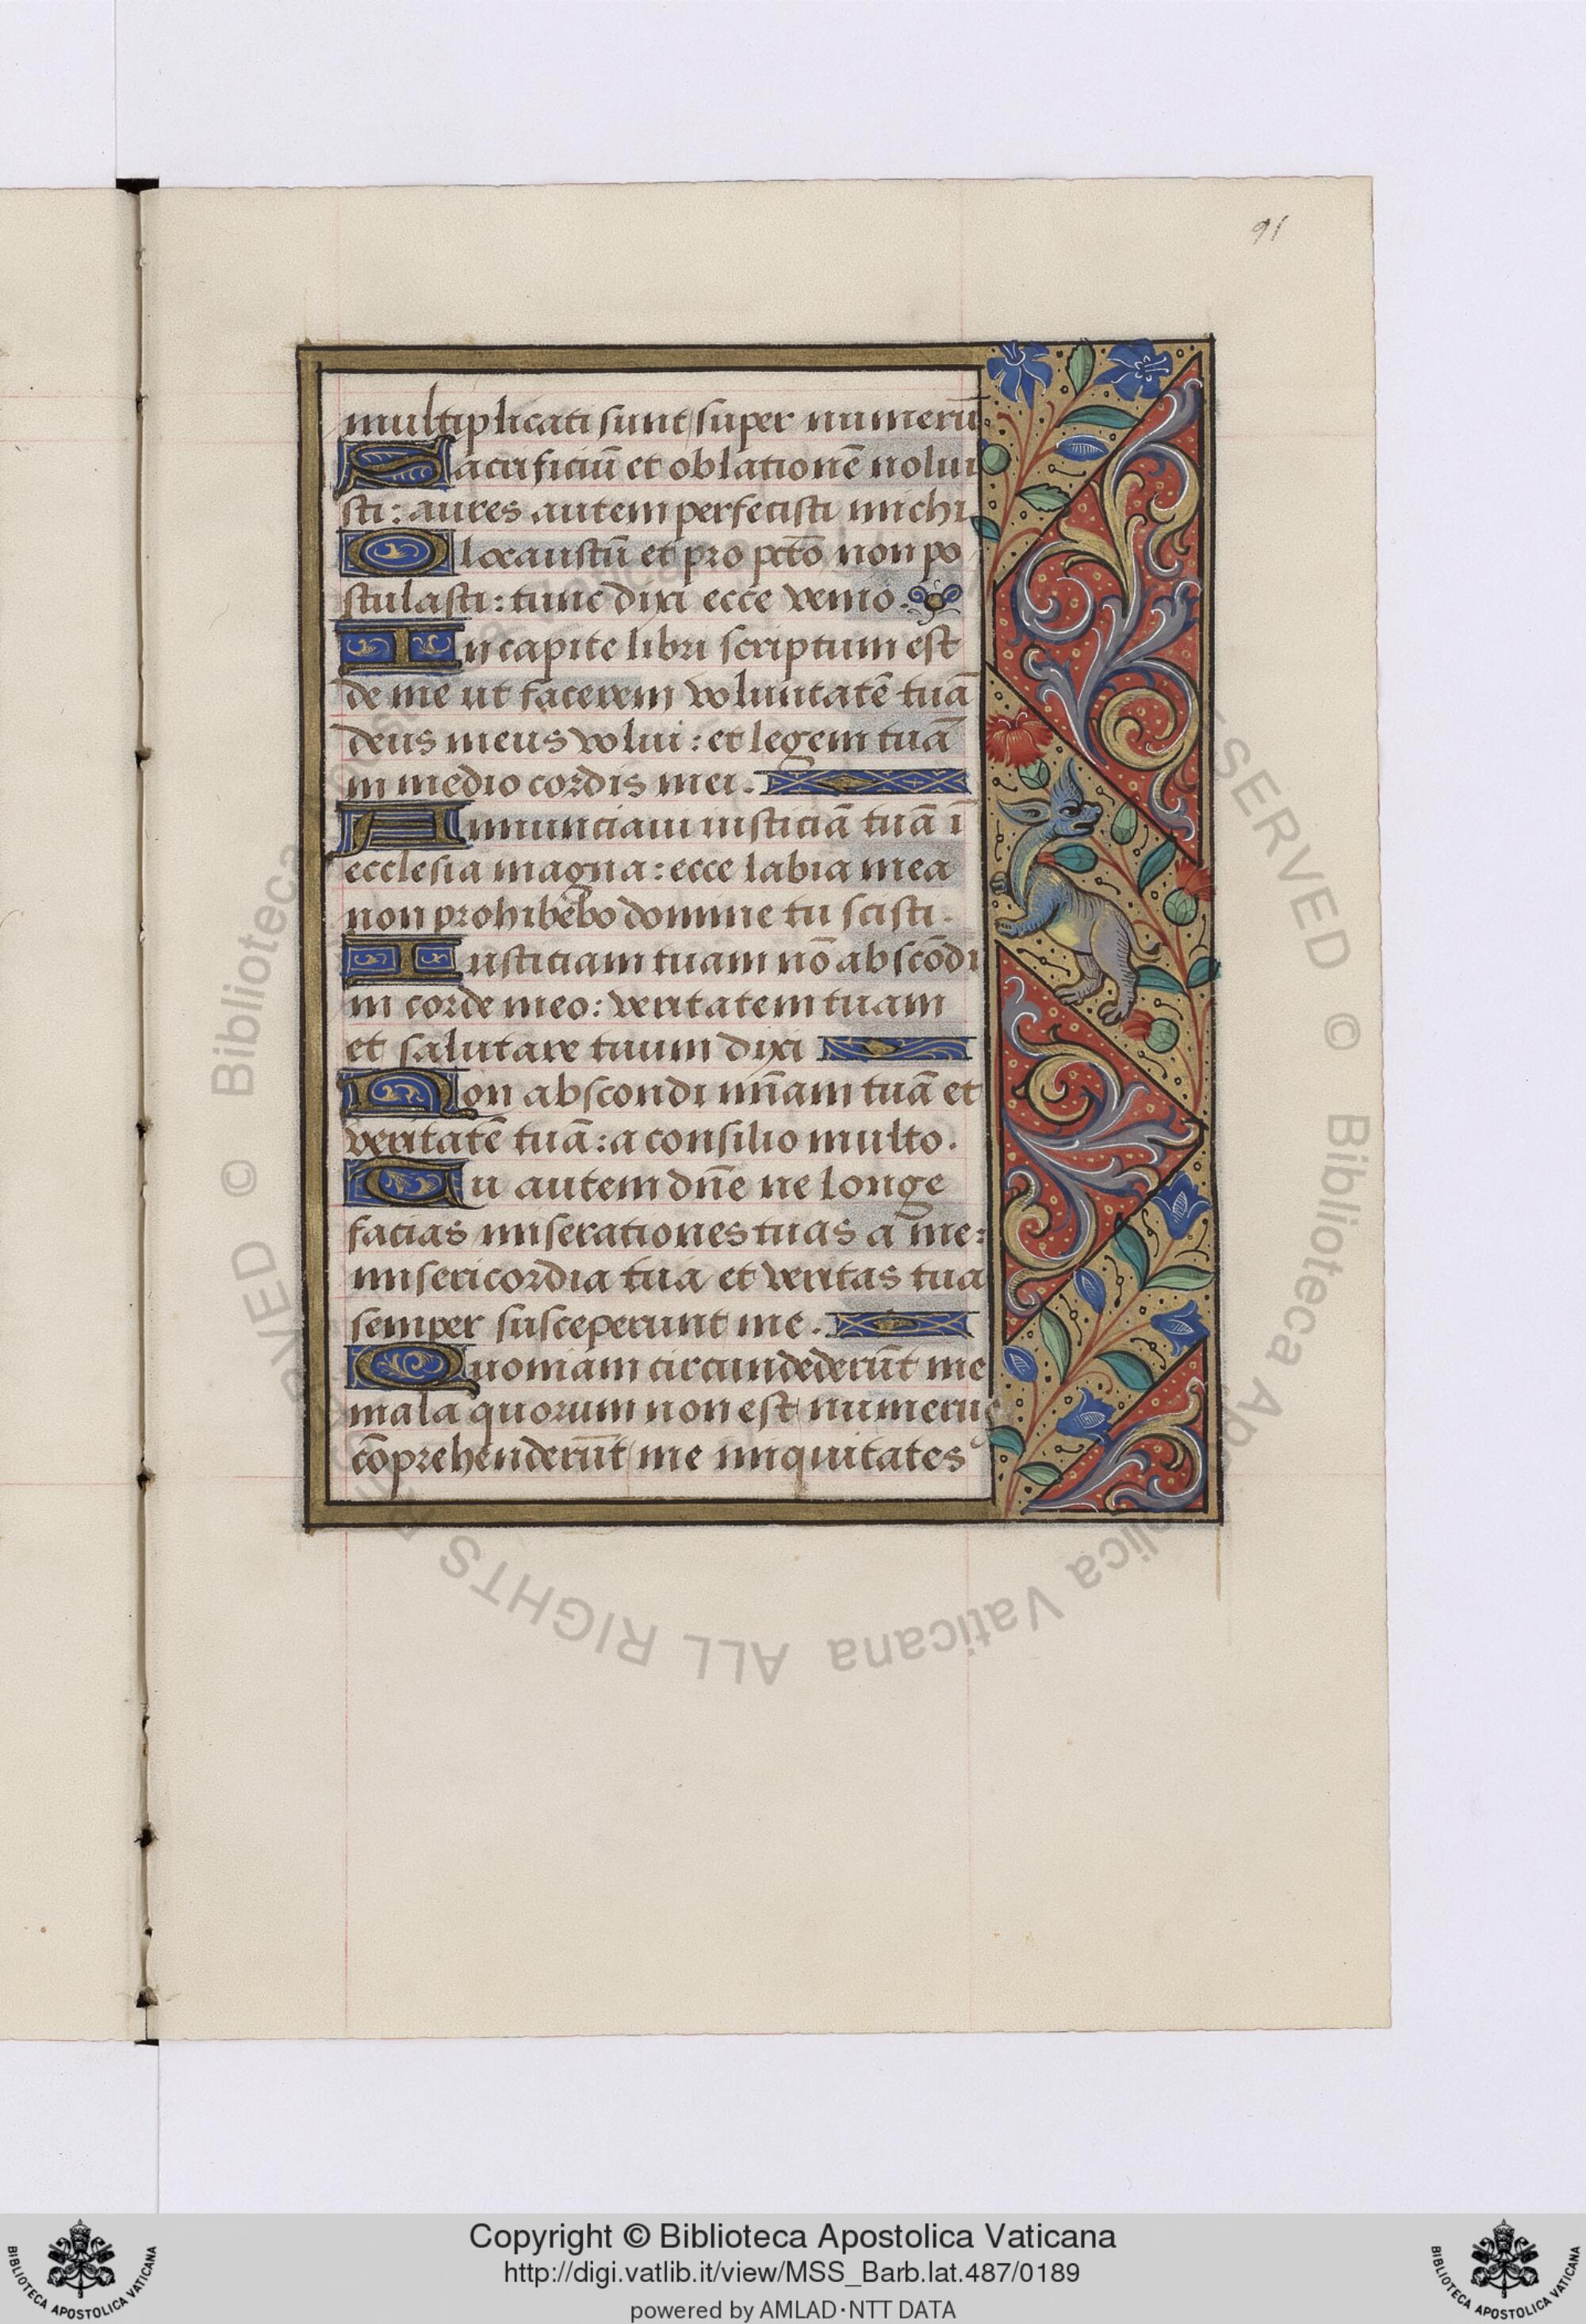 91
multiplicati sunt super numerū
Sacrificiū et oblationē nolui
sti: aures autem perfecisti michi
Olocaustū et pro pctō non po
stulasti: tunc dixi ecce venio.
In capite libri scriptum est
de me ut facerem voluntatē tuā
deus meus volui: et legem tuā
in medio cordis mei.
Annunciavi iusticiā tuā ī
ecclesia magna: ecce labia mea
non prohibebo domine tu scisti.
Iusticiam tuam nō abscōdi
in corde meo: veritatem tuam
et salutare tuum dixi
Non abscondi mīam tuā et
veritatē tuā: a consilio multo.
Tu autem dn̄e ne longe
facias miserationes tuas a me:
misericordia tua et veritas tua
semper susceperunt me.
Quoniam circundederūt me
mala quorum non est numerus
cōprehenderūt me iniquitates
© Biblioteca Apostolica Vaticana ALL RIGHTS RESERVED
Copyright © Biblioteca Apostolica Vaticana
http://digi.vatlib.it/view/MSS_Barb.lat.487/0189
powered by AMLAD·NTT DATA
BIBLIOTECA APOSTOLICA VATICANA
BIBLIOTECA APOSTOLICA VATICANA